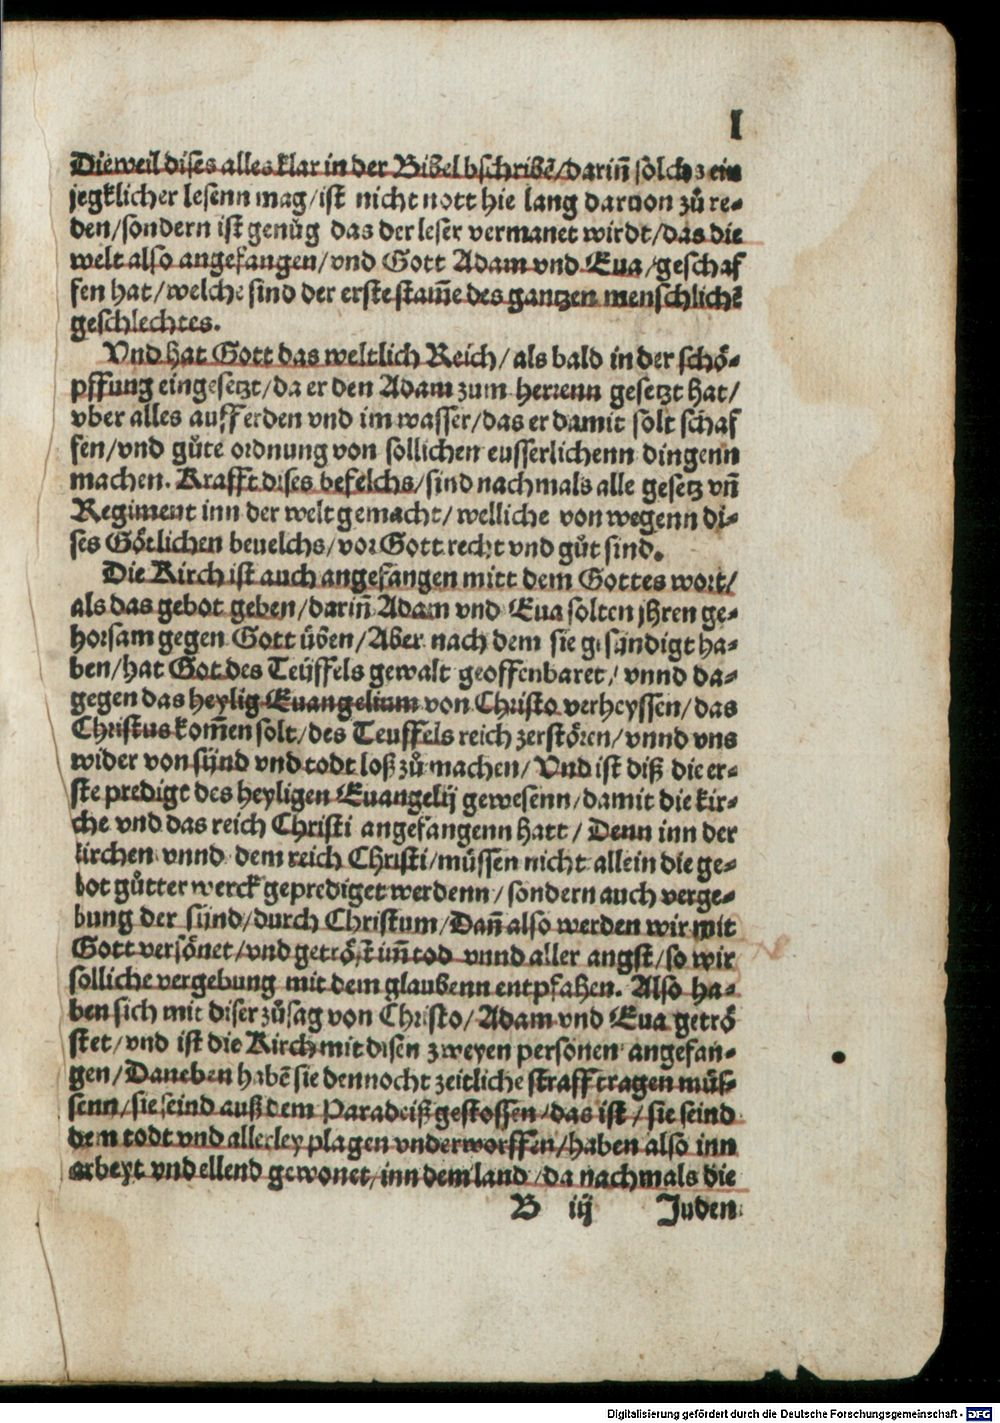 I
Dieweil dises alles klar in der Bibel bschribē/darin̄ solchs ein
jegklicher lesenn mag/ist nicht nott hie lang daruon zů re⸗
den/sondern ist genůg das der leser vermanet wirdt/das die
welt also angefangen/vnd Gott Adam vnd Eua/geschaf
fen hat/welche sind der erste stam̄e des gantzen menschlichē
geschlechtes.
Vnd hat Gott das weltlich Reich/als bald in der schö⸗
pffung eingesetzt/da er den Adam zum herrenn gesetzt hat/
vber alles auff erden vnd im wasser/das er damit solt schaf
fen/vnd gůte ordnung von sollichen eusserlichenn dingenn
machen. Krafft dises befelchs/sind nachmals alle gesetz vn̄
Regiment inn der welt gemacht/welliche von wegenn di⸗
ses Götlichen beuelchs/vor Gott recht vnd gůt sind.
Die Kirch ist auch angefangen mitt dem Gottes wort/
als das gebot geben/darin̄ Adam vnd Eua solten jhren ge⸗
horsam gegen Gott üben/Aber nach dem sie gesündigt ha⸗
ben/hat Got des Teüffels gewalt geoffenbaret/vnnd da⸗
gegen das heylig Euangelium von Christo verheyssen/das
Christus kom̄en solt/des Teuffels reich zerstören/vnnd vns
wider von sünd vnd todt loß zů machen/Vnd ist diß die er⸗
ste predigt des heyligen Euangelij gewesenn/damit die kir⸗
che vnd das reich Christi angefangenn hatt/Denn inn der
kirchen vnnd dem reich Christi/müssen nicht allein die ge⸗
bot gůtter werck geprediget werdenn/sondern auch verge⸗
bung der sünd/durch Christum/Dan̄ also werden wir mit
Gott versönet/vnd getröst im̄ tod vnnd aller angst/so wir
solliche vergebung mit dem glaubenn entpfahen. Also ha⸗
ben sich mit diser zůsag von Christo/Adam vnd Eua getrö
stet/vnd ist die Kirch mit disen zweyen personen angefan⸗
gen/Daneben habē sie dennocht zeitliche straff tragen müs⸗
senn/sie seind auß dem Paradeiß gestossen/das ist/sie seind
dem todt vnd allerley plagen vnderworffen/haben also inn
arbeyt vnd ellend gewonet/inn dem land/da nachmals die
B iij Juden
Digitalisierung gefördert durch die Deutsche Forschungsgemeinschaft - DFG